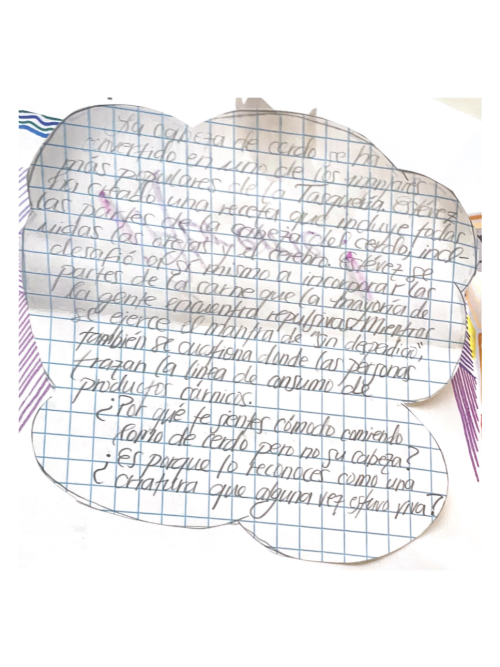 La cabeza de cerdo se ha
convertido en uno de los manjares
más populares de la Taquería Estérez
ha creado una receta que incluye todas
las partes de la cabeza del cerdo, inclu-
uidas las orejas y el cerebro. Estérez se
desafió a sí mismo a incorporar las
partes de la carne que la mayoría de
la gente encuentra repulsivas. Mientras
se ejerce la mantra de "sin desperdicio",
también se cuctiona donde las personas
trazan la línea de consumo de
productos cárnicos.
¿Por qué te sientes cómodo comiendo
lomo de cerdo pero no su cabeza?
¿Es porque lo reconoces como una
criatura que alguna vez estuvo viva?